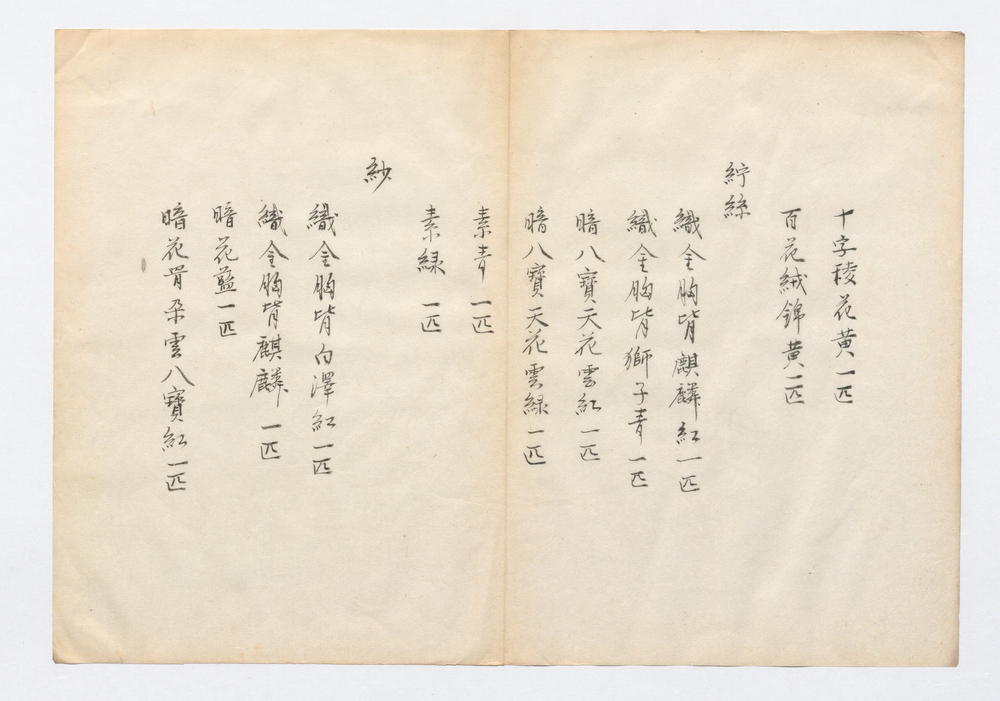 十字稜花黄一匹
百花絨錦黄一匹
紵絲
織金胸背麒麟紅一匹
織金胸背獅子青一匹
暗八寶天花雲紅一匹
暗八寶天花雲緑一匹
素青一匹
素緑一匹
紗
織金胸背白澤紅一匹
織金胸背麒麟一匹
暗花藍一匹
暗花骨朶雲八寶紅一匹